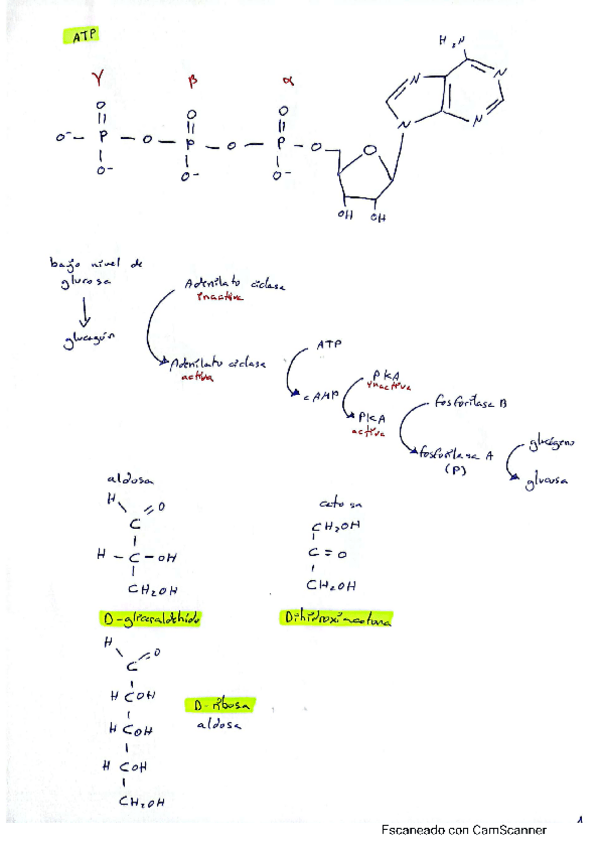 ATP
γ β α
H₂N
O O O
N N
O⁻ — P — O — P — O — P — O O N N
O⁻ O⁻ O⁻
OH OH
bajo nivel de
glucosa
glucagón
Adenilato ciclasa
inactiva
Adenilato ciclasa
activa
ATP
cAMP
PKA
inactiva
PKA
activa
fosforilasa B
fosforilasa A
(P)
glucógeno
glucosa
aldosa
H O
C
H — C — OH
CH₂OH
D-gliceraldehido
cetosa
CH₂OH
C = O
CH₂OH
Dihidroxiacetona
H O
C
H COH
H COH
H COH
CH₂OH
D-ribosa
aldosa
1
Escaneado con CamScanner